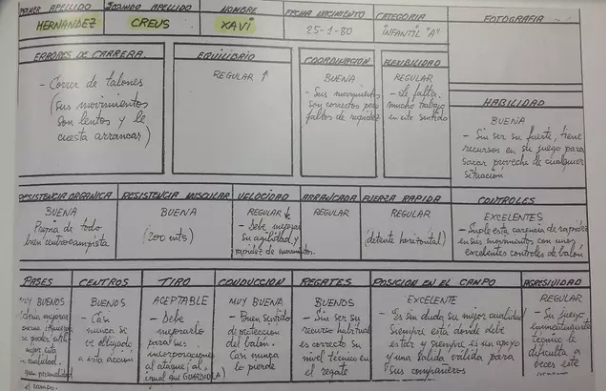 PRIMER APELLIDO SEGUNDO APELLIDO NOMBRE FECHA NACIMIENTO CATEGORIA FOTOGRAFIA
HERNANDEZ CREUS XAVI 25-1-80 INFANTIL "A"
ERRORES DE CARRERA.
- Correr de talones
(sus movimientos
son lentos y le
cuesta arrancar)
EQUILIBRIO
REGULAR ↑
COORDINACION
BUENA
- Sus movimientos
son correctos pero
faltos de rapidez
FLEXIBILIDAD
REGULAR
- Le falta
mucho trabajo
en este sentido
HABILIDAD
BUENA
- Sin ser su fuerte, tiene
recursos en su juego para
sacar provecho de cualquier
situación
RESISTENCIA ORGANICA
BUENA
Propia de todo
buen centrocampista
RESISTENCIA MUSCULAR
BUENA
(200 mts)
VELOCIDAD
REGULAR
- Debe mejorar
su agilidad y
rapidez de movimientos.
ARRANCADA
REGULAR
FUERZA RAPIDA
REGULAR
(detente horizontal)
CONTROLES
EXCELENTES
- Suple esta carencia de rapidez
en sus movimientos con unos
excelentes controles de balón
PASES
MUY BUENOS
mejorar
CENTROS
BUENOS
- Casi
nunca se
ve obligado
a esta acción
TIRO
ACEPTABLE
- Debe
mejorarlo
para sus
incorporaciones
al ataque (al
igual que GUARDIOLA)
CONDUCCION
MUY BUENA
- Buen sentido
de protección
del balón.
Casi nunca
lo pierde
REGATES
BUENOS
- Sin ser su
recurso habitual
es correcto su
nivel técnico en
el regate
POSICION EN EL CAMPO
EXCELENTE
- Es sin duda su mejor cualidad
Siempre está donde debe
estar y siempre es un apoyo
y una salida válida para
sus compañeros
AGRESIVIDAD
REGULAR
- Su juego
eminentemente
técnico le
dificulta a
veces este